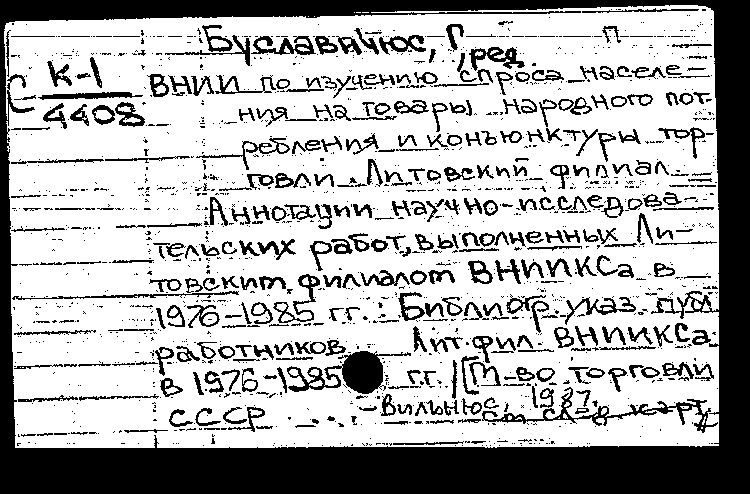 Буславичюс, Г, ред. П
К-1
4408
ВНИИ по изучению спроса населе-
ния на товары народного пот-
ребления и конъюнктуры тор-
говли. Литовский филиал.
Аннотации научно-исследова-
тельских работ, выполненных Ли-
товским филиалом ВНИИКСа в
1976-1985 гг.: Библиогр. указ. публ
работников Лит. фил. ВНИИКСа
в 1976-1985 гг. /[М-во торговли
СССР ... -Вильнюс, 1987.
См. след карт.